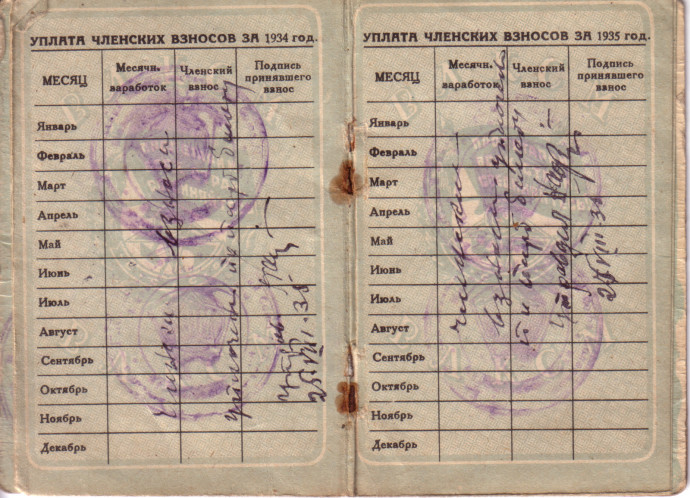 УПЛАТА ЧЛЕНСКИХ ВЗНОСОВ ЗА 1934 год.
МЕСЯЦ
Месячн. заработок
Членский взнос
Подпись принявшего взнос
Январь
Февраль
Март
Апрель
Май
Июнь
Июль
Август
Сентябрь
Октябрь
Ноябрь
Декабрь
взносы
25.VIII.35
УПЛАТА ЧЛЕНСКИХ ВЗНОСОВ ЗА 1935 год.
МЕСЯЦ
Месячн. заработок
Членский взнос
Подпись принявшего взнос
Январь
Февраль
Март
Апрель
Май
Июнь
Июль
Август
Сентябрь
Октябрь
Ноябрь
Декабрь
взносы
билету